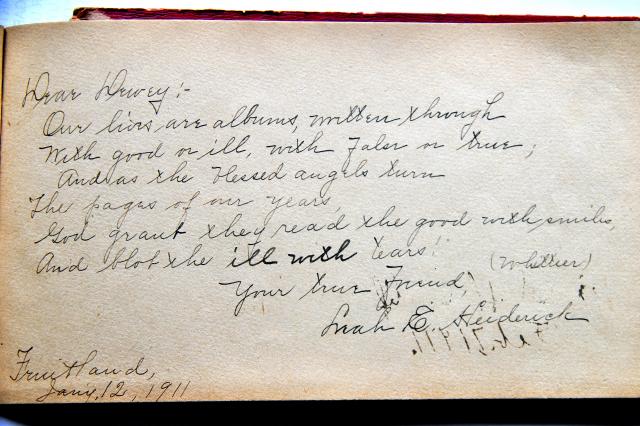 Dear Dewey:-
Our lives are albums, written through
With good or ill, with false or true;
And as the blessed angels turn
The pages of our years,
God grant they read the good with smiles,
And blot the ill with tears!
(Whittier)
Your true Friend,
Leah E. Heiderick
Fruitland,
Jany. 12, 1911